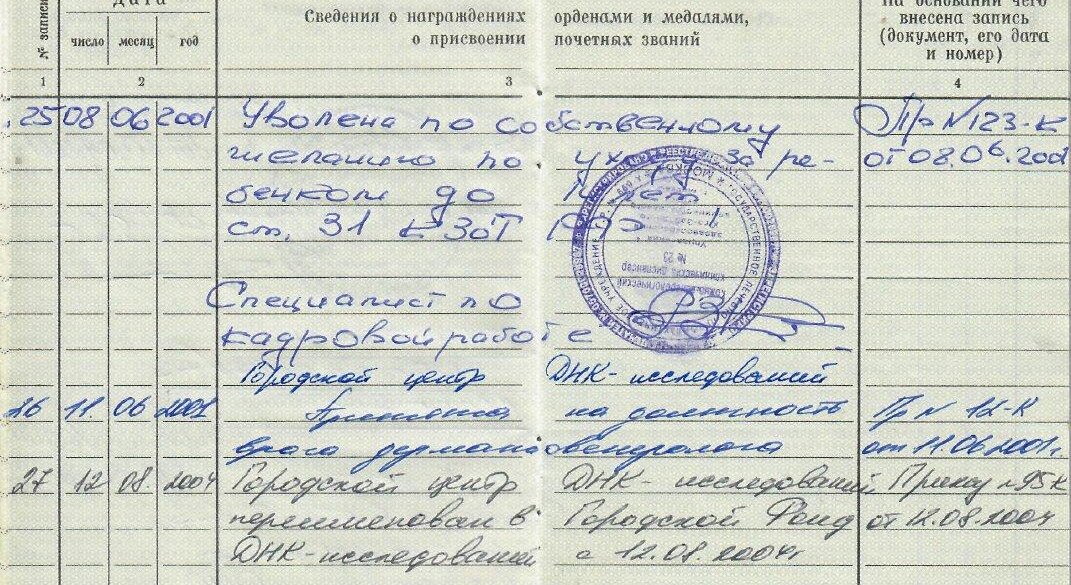 Дата
Сведения о награждениях орденами и медалями,
о присвоении почетных званий
На основании чего
внесена запись
(документ, его дата
и номер)
№ записи
число месяц год
1 2 3 4
25 08 06 2001 Уволена по собственному Пр N 123-К
желанию по уходу за ре- от 08.06.2001
бенком до лет
ст. 31 КЗоТ РФ
Специалист по
кадровой работе
Городской центр ДНК-исследований
26 11 06 2001 Принята на должность Пр N 12-К
врача дерматовенеролога от 11.06.2001г.
27 12 08 2004 Городской центр ДНК-исследований Приказ N 95К
переименован в Городской Фонд от 12.08.2004
ДНК-исследований с 12.08.2004г